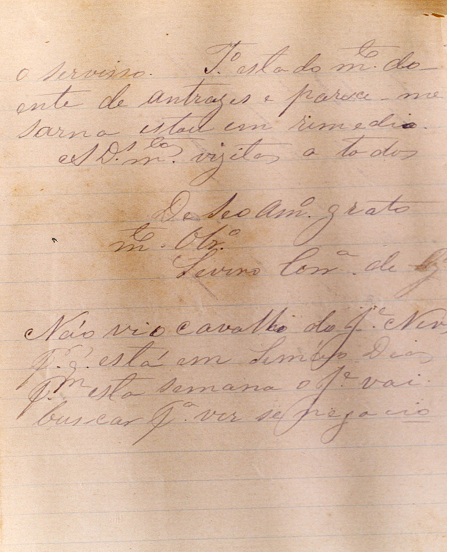 o servisso. J.º esta do m.to do
ente de antrazes e parece-me
sarna estou em remedio.
vizitas a todos
De Seo Am.º grato
m.to Obr.º
Livino de
Não vio cavallo do J.e
p.q. está em Simão Dias
esta semana o J.e vai
buscar p.a ver se negocio